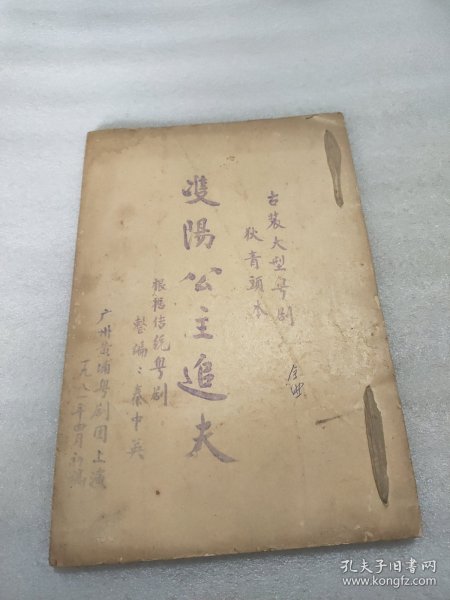 古装大型粤剧
狄青頭本
全典
雙陽公主追夫
根据传统粤剧
整编：秦中英
广州黄埔粤剧团上演
一九八一年四月初稿
孔夫子旧书网
www.kongfz.com